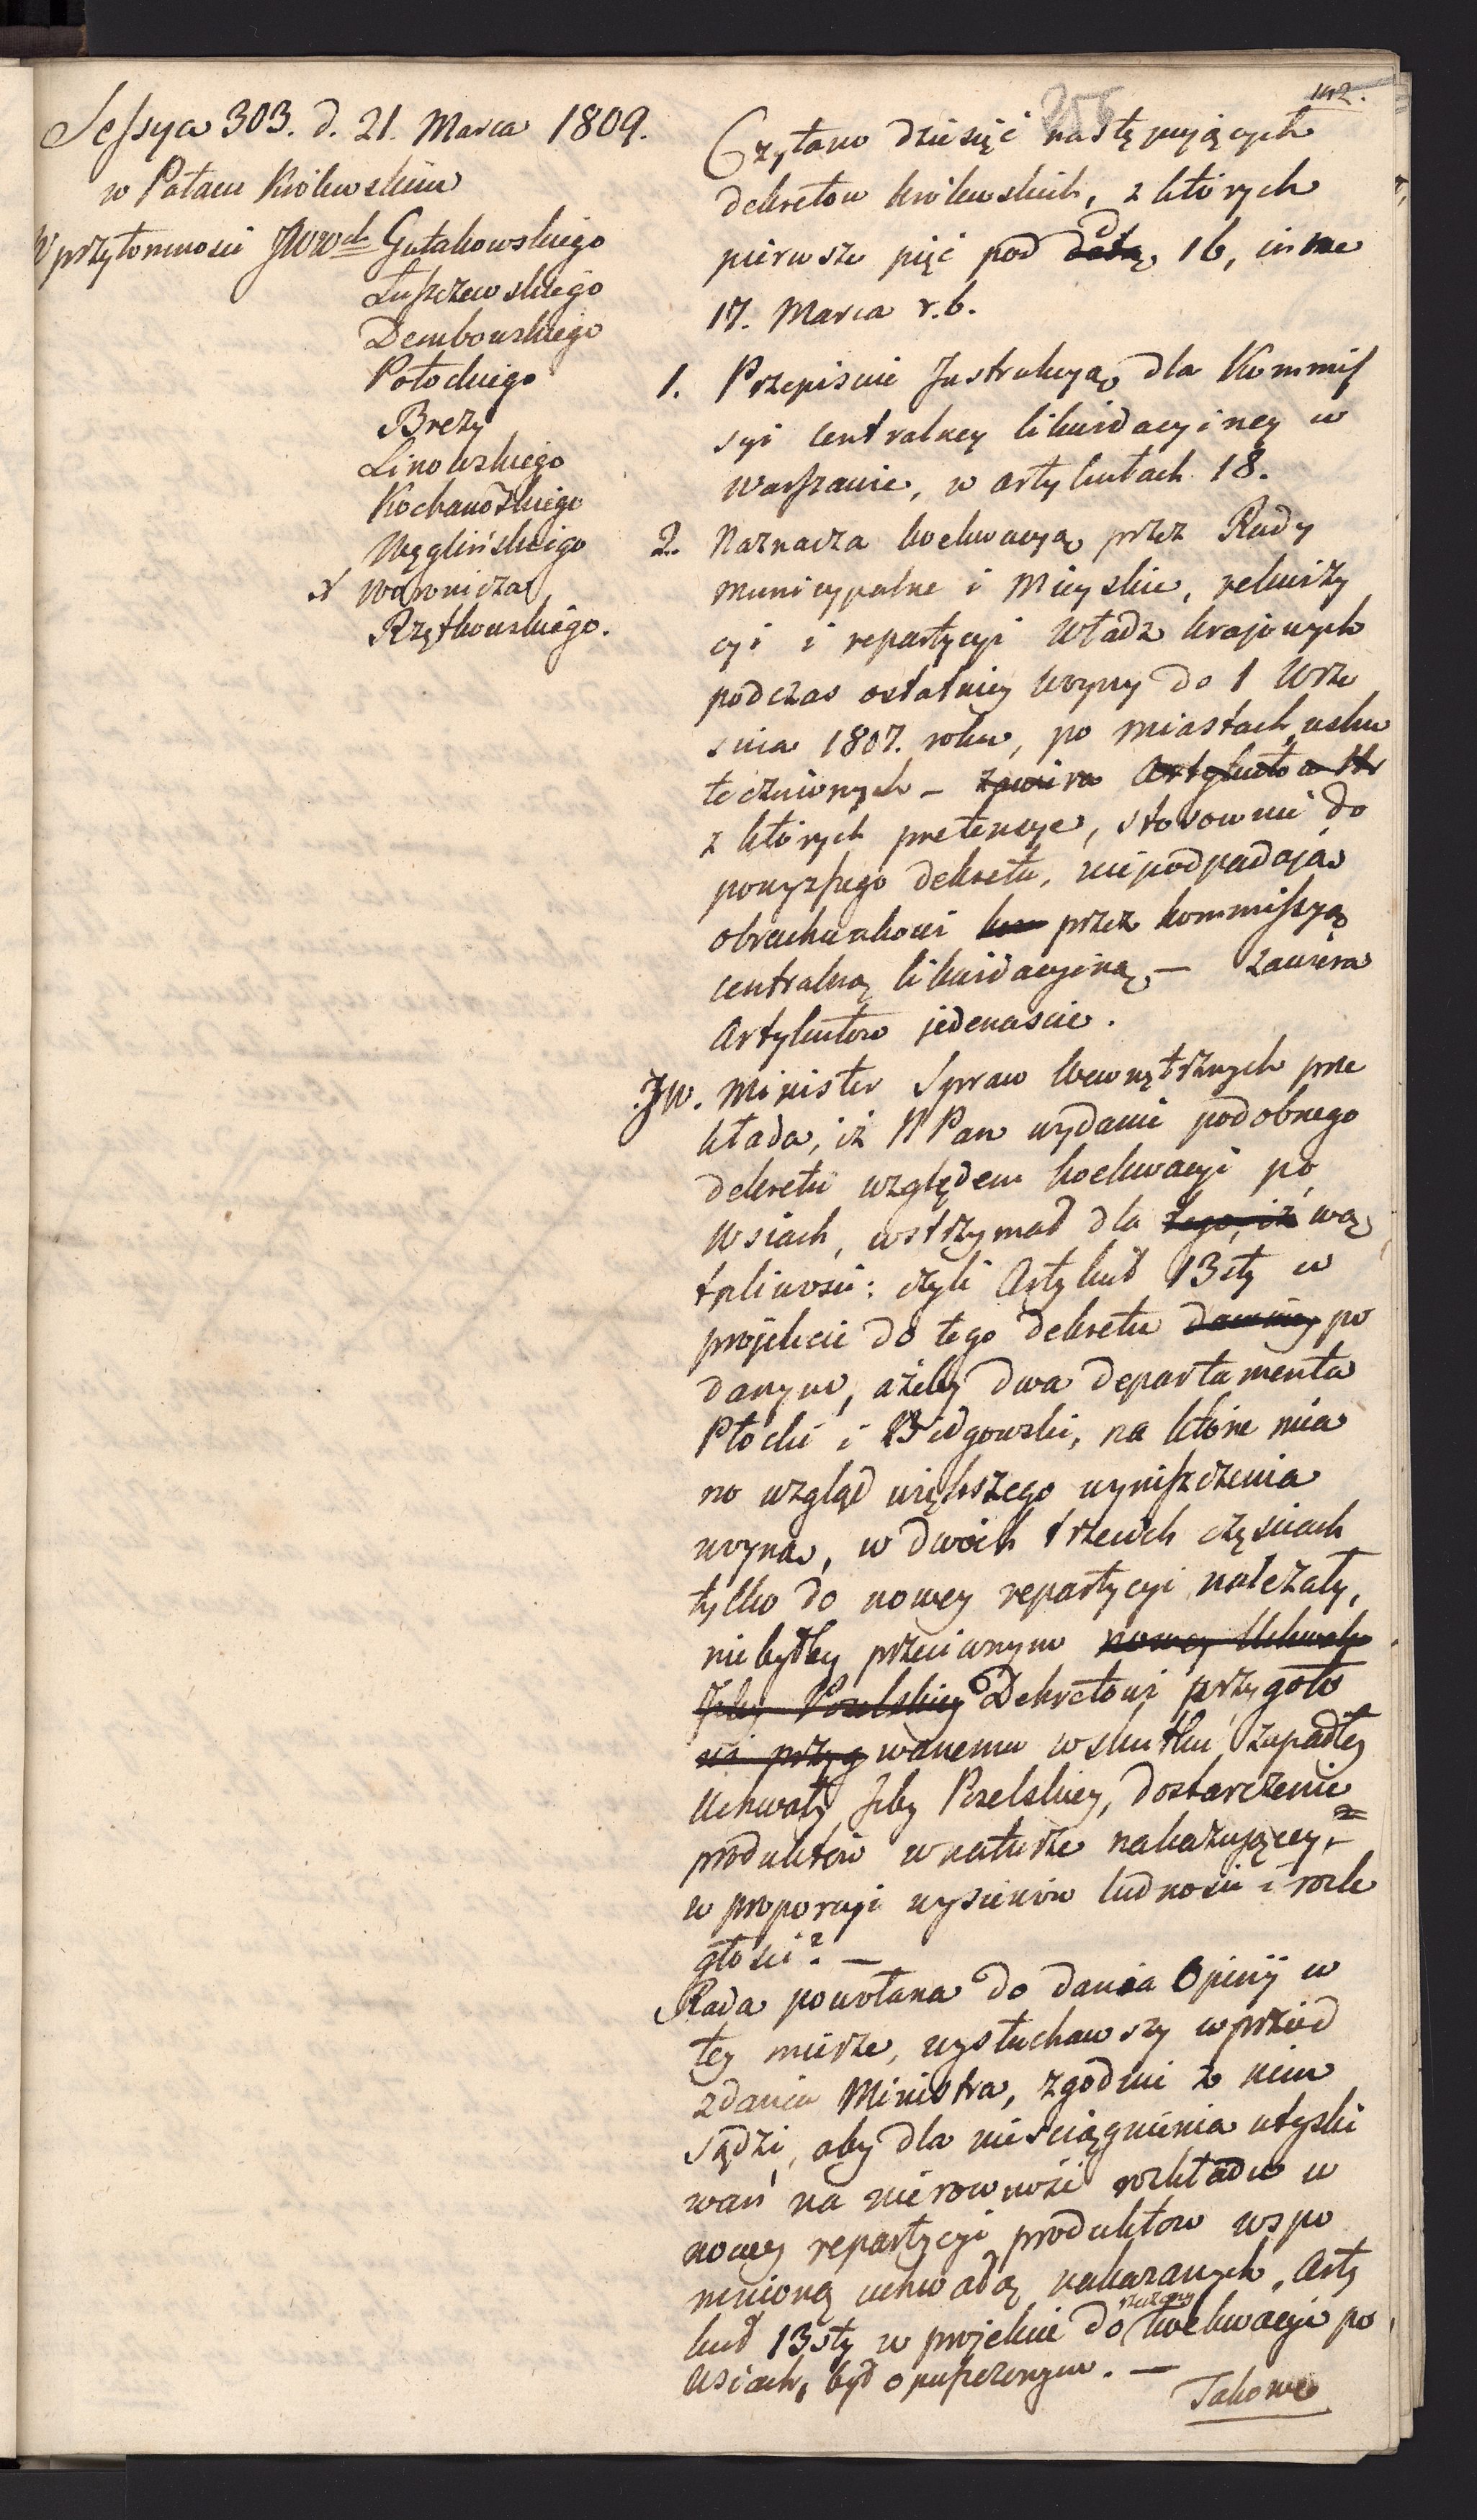 Sessya 303. d. 21. Marca 1809.
w Pałacu Królewskim
W przytomnosci JWWch Gutakowskiego
Łuszczewskiego
Dembowskiego
Potockiego
Brezy
Linowskiego
Kochanowskiego
Węglińskiego
X Woronicza
Rzętkowskiego.
142.
Czytano dziesięć następujących
dekretow królewskich, z których
pierwsze pięć pod datą 16, inne
17. Marca r.b.
1. Przepisuie Instrukcyą dla Kommis
syi centralney likwidacyiney w
Warszawie, w artykułach 18.
2. Naznacza koekwacyą przez Rady
Municypalne i Mieyskie, rekwizy
cyi i repartycyi Władz kraiowych
podczas ostatniey woyny do 1 Wrze
snia 1807. roku, po miastach usku
tecznionych – zawiera Artykułow
z których pretensye, stosownie do
powyzszego dekretu, niepodpadaią
obrachunkowi przez kommissyą
centralną likwidacyiną, – zawiera
Artykułow jedenascie.
JW. Minister Spraw Wewnętrznych prze
kłada, iż N Pan wydanie podobnego
dekretu względem koekwacyi po
Wsiach, wstrzymał dla tego, iż wą
tpliwosci: czyli Artykuł 13ty w
projekcie do tego dekretu dawniey po
danym, ażeby dwa departamenta
Płocki i Bidgowski, na które mia
no wzgląd większego wyniszczenia
woyną, w dwóch trzecich częsciach
tylko do nowey repartycyi należały,
niebyłby przeciwnym nowey Uchwały
Izby Poselskiey Dekretowi przygoto
wi przyg wanemu wskutku zapadłey
Uchwały Izby Poselskiey, dostarczenie
produktów w naturze nakazuiącey, –
w proporcyi wysiewów ludnosci i rozle
głosci? –
Rada powołana do dania Opinij w
tey mierze, wysłuchawszy wprzód
zdania Ministra, zgodnie z nim
sądzi, aby dla niesciągnienia utyski
wań na nierowność rozkładu w
nowey repartycyi produktow wspo
mnioną uchwałą nakazanych, Arty
kuł 13sty w projekcie do koekwacyi po
Wsiach, był opuszczonym. –
Takowe